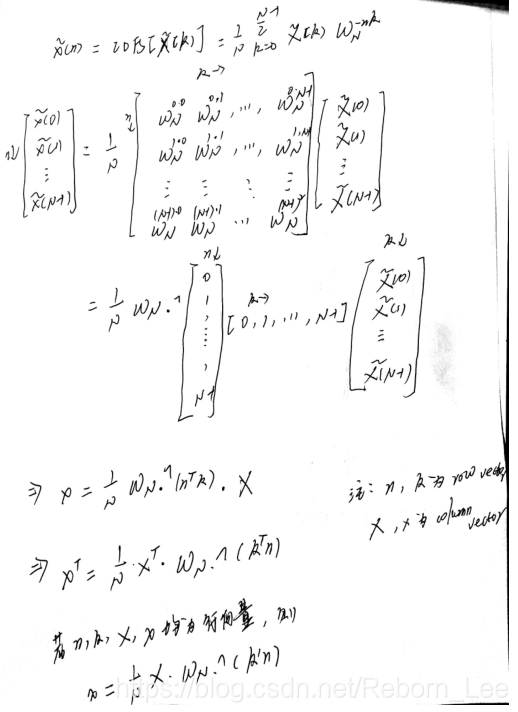 x̃(n) = IDFS[X̃(k)] = 1/N Σ_{k=0}^{N-1} X̃(k) W_N^{-nk}
k→
n↓ [x̃(0) x̃(1) ⋮ x̃(N-1)] = 1/N n↓ [W_N^{0·0} W_N^{0·1} , ..., W_N^{0·N-1}
W_N^{1·0} W_N^{1·1} , ..., W_N^{1·N-1}
⋮ ⋮ ⋮ ⋮
W_N^{(N-1)·0} W_N^{(N-1)·1} ... W_N^{(N-1)²}] [X̃(0) X̃(1) ⋮ X̃(N-1)]
n↓ k→ k↓
= 1/N W_N.^[0 1 , ⋮ , N-1] [0, 1, ..., N-1] [X̃(0) X̃(1) ⋮ X̃(N-1)]
⇒ x = 1/N W_N.^(n^T k) · X
注: n, k 为 row vector
X, x 为 column vector
⇒ x^T = 1/N · X^T · W_N.^(k^T n)
若 n, k, X, x 均为行向量, 则
x = 1/N X · W_N.^(k'n)
https://blog.csdn.net/Reborn_Lee